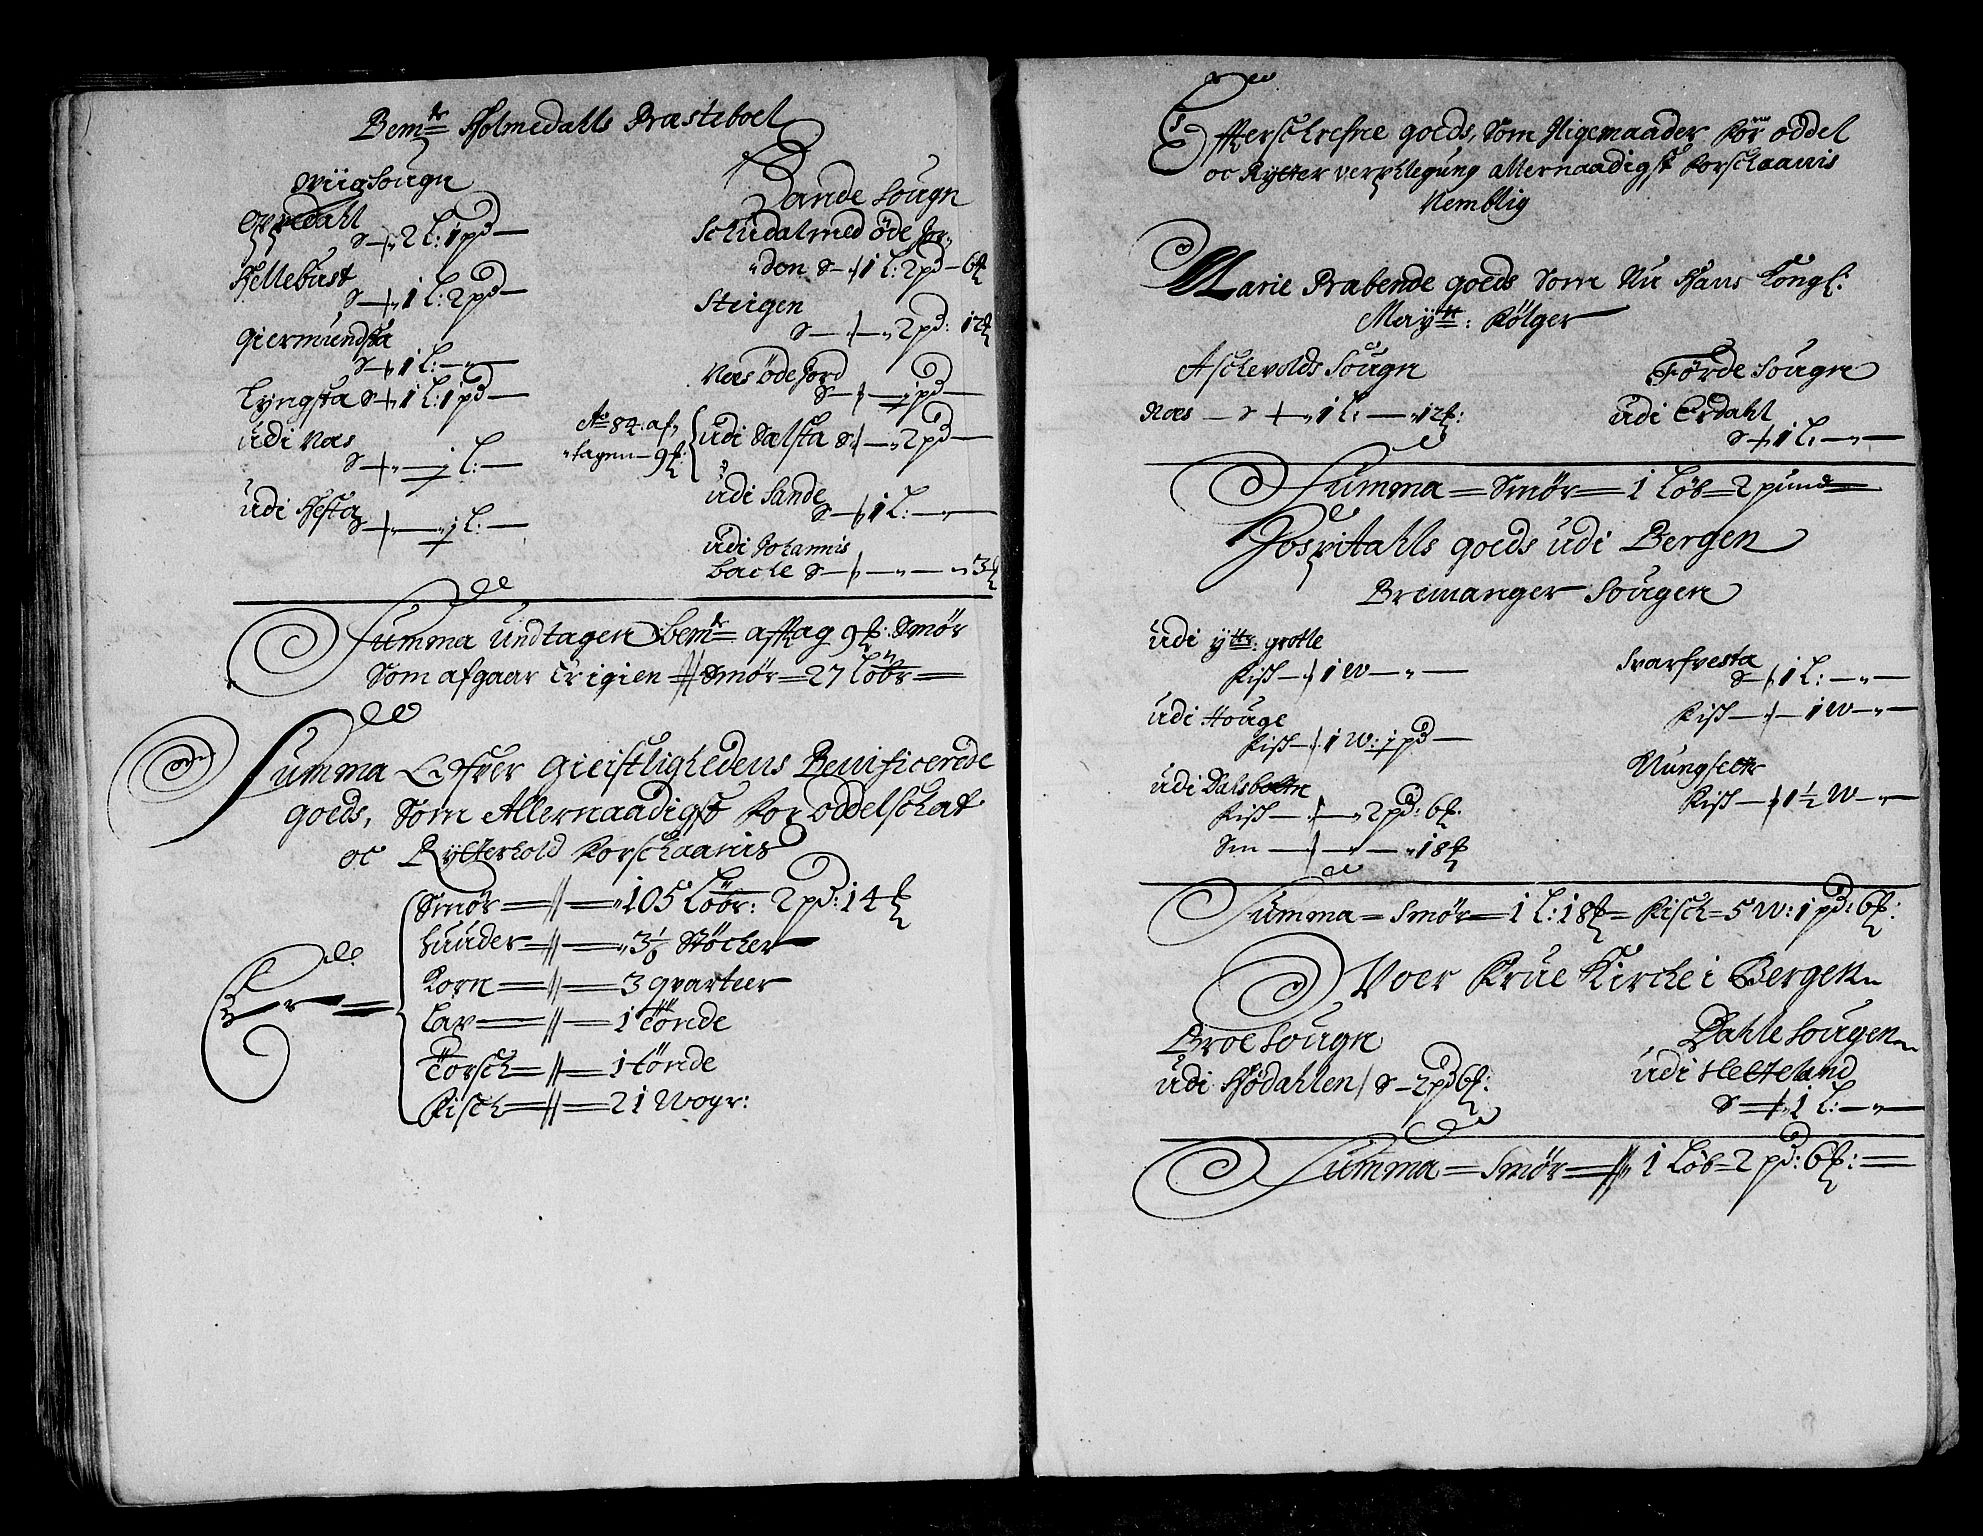 Bem:te Holmedahls Præsteboel
Viig Sougn
Opredahl
S — 2 L: 1 pd —
Hellebust
S — 1 L: 2 pd —
Giermundsta
S — 1 L: —
Lyngsta S — 1 L: 1 pd —
udi Næs
S — — j L: —
udi Hesta
S — — j L: —
Sande Sougn
Schudal med öde Jor„
„den S — 1 L: 2 pd — 6 #
Steigen
S — — 2 pd: 12 #
Næs öde Jord
S — — j pd —
Ao 84: af„
„tagen — 9 #
udi Sælsta S — — 2 pd —
udi Sande
S — 1 L: —
udi Johannis
backe S — — — 3 #
Summa undtagen bem:te afftag 9 #. Smör
Som afgaar Erigien // Smör — 27 Löbr —
Summa Ofver Gieistlighedens Benificerede
goeds, Som Allernaadigst for oddelschat
oc Rytterhold forschaanis
Er —
Smör — // — 105 Löbr: 2 pd: 14 #
huuder — // — 3 1/8 Stöcher
Korn — // — 3 qvarteer
Lax — // — 1 Tönde
Torsch — // — 1 tönde
Fisch — // — 21 Wogr:
Effterschrefne goeds, Som ligemaader for oddel
oc Rytter verpflegung allernaadigst forschaanis
Nemblig
Marie Præbende goeds Som Nu Hans Kongl:
Mayt:tt fölger
Aschevolds Sougn
Næs — S — 1 L: — 12 #:
Förde Sougn
udi Erdahl
S — 1 L: —
Summa — Smör — 1 Löb — 2 pund —
Hospitahls goeds udi Bergen
Bremanger Sougen
udi ytter: grotle
Fisk — 1 W —
udi Houge
Fisk — 1 W: j pd —
udi Dalsbotne
Fisk — — 2 pd: 6 #.
Sm — — — 18 #
Svarfvesta
S — 1 L: —
Fisk — 1 W —
Nungseetr
Fisk — 1 1/2 W —
Summa — Smör — 1 L: 18 # — Fisch — 5 W: 1 pd: 6 #:
Voer Frue Kircke i Bergen
Broe Sougn
udi Hödahlen / S — 2 pd 6 #:
Dahle Sougen
udi Helteland
S — 1 L: —
Summa — Smör — // 1 Löb — 2 pd: 6 #: —